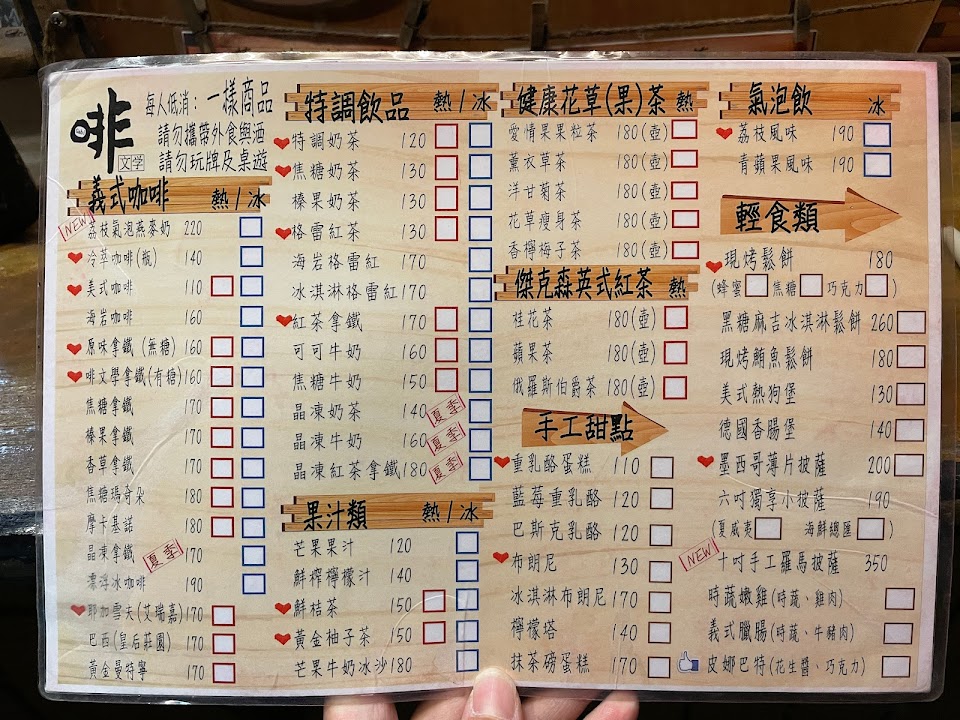 啡
文学
每人低消：一樣商品
請勿攜帶外食與酒
請勿玩牌及桌遊
義式咖啡 熱/冰
NEW!
荔枝氣泡燕麥奶 220
冷萃咖啡(瓶) 140
美式咖啡 110
海岩咖啡 160
原味拿鐵 (無糖) 160
啡文學拿鐵(有糖)160
焦糖拿鐵 170
榛果拿鐵 170
香草拿鐵 170
焦糖瑪奇朵 180
摩卡基諾 180
晶凍拿鐵 夏季 170
漂浮冰咖啡 190
耶加雪夫(艾瑞嘉)170
巴西(皇后莊園) 170
黃金曼特寧 170
特調飲品 熱/冰
特調奶茶 120
焦糖奶茶 130
榛果奶茶 130
格雷紅茶 130
海岩格雷紅 170
冰淇淋格雷紅170
紅茶拿鐵 170
可可牛奶 160
焦糖牛奶 150
晶凍奶茶 140 夏季
晶凍牛奶 160 夏季
晶凍紅茶拿鐵180 夏季
果汁類 熱/冰
芒果果汁 120
鮮榨檸檬汁 140
鮮桔茶 150
黃金柚子茶 150
芒果牛奶冰沙180
健康花草(果)茶 熱
愛情果果粒茶 180(壺)
薰衣草茶 180(壺)
洋甘菊茶 180(壺)
花草瘦身茶 180(壺)
香檸梅子茶 180(壺)
傑克森英式紅茶 熱
桂花茶 180(壺)
蘋果茶 180(壺)
俄羅斯伯爵茶 180(壺)
手工甜點
重乳酪蛋糕 110
藍莓重乳酪 120
巴斯克乳酪 120
布朗尼 130
冰淇淋布朗尼 170
檸檬塔 140
抹茶磅蛋糕 170
氣泡飲 冰
荔枝風味 190
青蘋果風味 190
輕食類
現烤鬆餅 180
(蜂蜜 焦糖 巧克力 )
黑糖麻吉冰淇淋鬆餅 260
現烤鮪魚鬆餅 180
美式熱狗堡 130
德國香腸堡 140
墨西哥薄片披薩 200
六吋獨享小披薩 190
(夏威夷 海鮮總匯 )
NEW!
十吋手工羅馬披薩 350
時蔬嫩雞(時蔬、雞肉)
義式臘腸(時蔬、牛豬肉)
皮娜巴特(花生醬、巧克力)